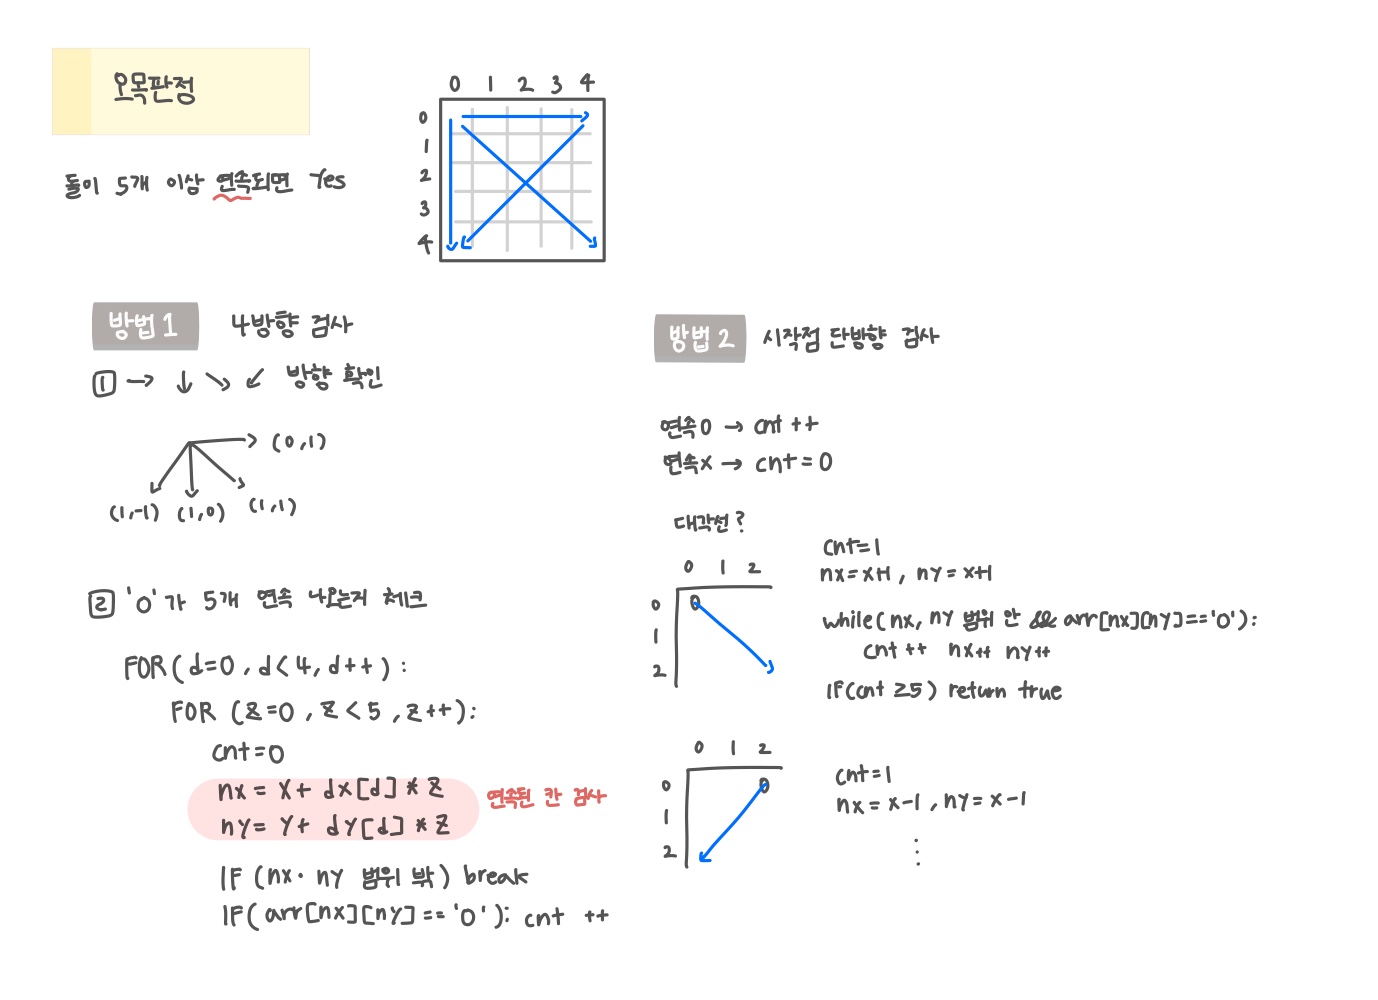 오목판정
돌이 5개 이상 연속되면 Yes
0 1 2 3 4
0
1
2
3
4
방법 1 4방향 검사
1 → ↓ ↘ ↙ 방향 확인
(0,1)
(1,-1) (1,0) (1,1)
2 'O'가 5개 연속 나오는지 체크
FOR(d=0, d<4, d++):
FOR (z=0, z<5, z++):
cnt=0
nx = x+ dx[d] * z
ny= y+ dy[d] * z
연속된 칸 검사
IF (nx· ny 범위 밖) break
IF(arr[nx][ny]=='0'): cnt ++
방법 2 시작점 단방향 검사
연속O → cnt ++
연속X → cnt=0
대각선?
0 1 2
0 0
1
2
cnt=1
nx=x+1, ny=x+1
while(nx, ny 범위 안 && arr[nx][ny]=='0'):
cnt++ nx++ ny++
IF(cnt ≥5) return true
0 1 2
0 0
1
2
cnt=1
nx= x-1, ny= x-1
⋮